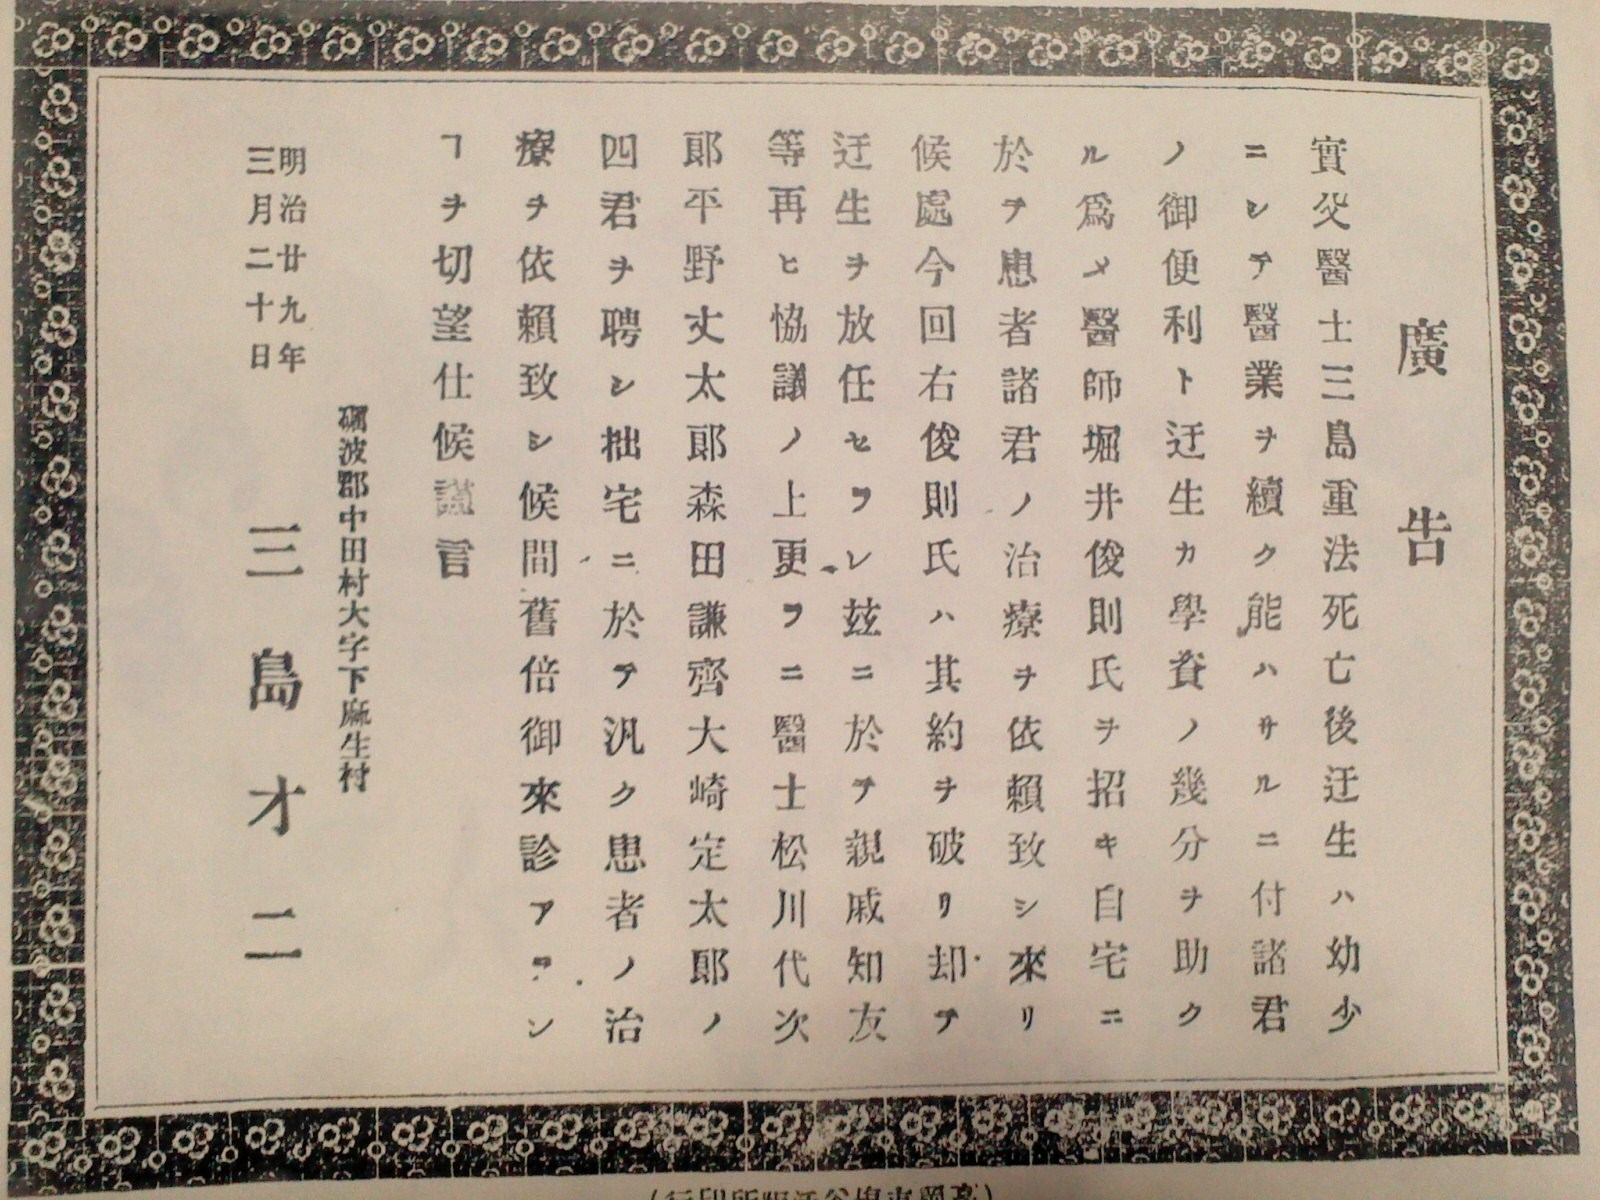 廣告
實父醫士三島重法死亡後迂生ハ幼少
ニシテ醫業ヲ續ク能ハサルニ付諸君
ノ御便利ト迂生カ學資ノ幾分ヲ助ク
ル爲メ醫師堀井俊則氏ヲ招キ自宅ニ
於テ患者諸君ノ治療ヲ依賴致シ來リ
候處今回右俊則氏ハ其約ヲ破リ却テ
迂生ヲ放任セラレ玆ニ於テ親戚知友
等再ヒ恊議ノ上更ラニ醫士松川代次
郞平野丈太郞森田謙齊大崎定太郞ノ
四君ヲ聘シ拙宅ニ於テ汎ク患者ノ治
療ヲ依賴致シ候間舊倍御來診アラン
ヿヲ切望仕候謹言
礪波郡中田村大字下麻生村
明治廿九年
三月二十日
三島才二